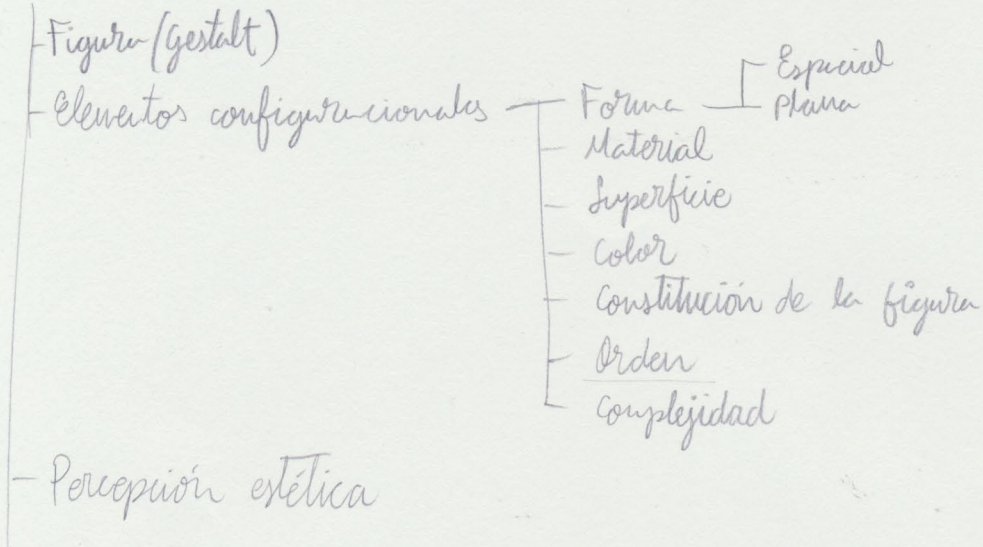 Figura (Gestalt)
Elementos configuracionales
Forma
Espacial
Plana
Material
Superficie
Color
Constitución de la figura
Orden
Complejidad
Percepción estética